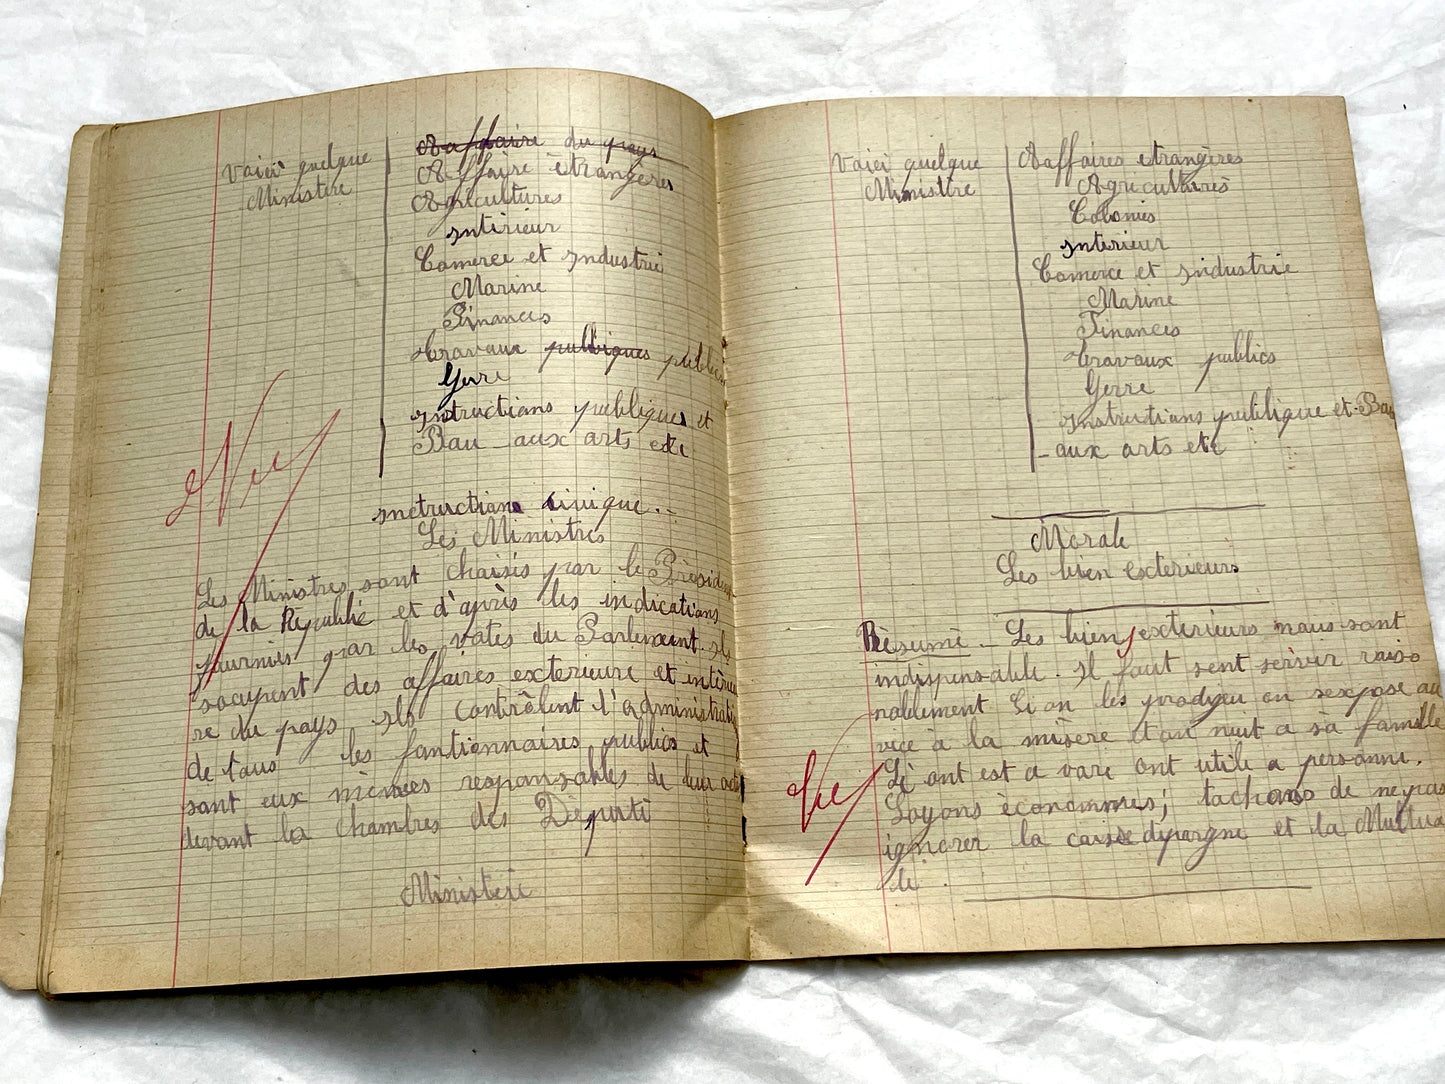 Voici quelque
Ministere
Aaffaire du pays
Affaire étrangères
Agricultures
intérieur
Comerce et industrie
Marine
Finances
travaux publiques publics
Gerre
instructions publiques et
Bau - aux arts etc
Vu
instruction civique.
Les Ministres
Les Ministres sont choisis par le Présiden
de la République et d'après les indications
fournies par les votes du Parlement. ils
socupent des affaires exterieure et intérieu
re du pays ils contrôlent l'administratio
de tous les fontionnaires publics et
sont eux mêmes responsables de leur acte
devant la chambres des Deputé
Ministere
Voici quelque
Ministre
Aaffaires etrangères
Agricultures
Colonies
intérieur
Comerce et industrie
Marine
Finances
travaux publics
Gerre
instructions publique et Bau
- aux arts etc
Morale
Les bien exterieurs
Résumé - Les bien exterieurs nous sont
indispensable. il faut sent servir raiso
nablement Si on les prodigeu on sexpose au
vice à la misère et on nuit a sa famille
Si ont est a vare ont utile a personne.
Soyons économmes; tachons de ne pas
ignorer la caisse dépargne et la Mutua
lé.
Vu